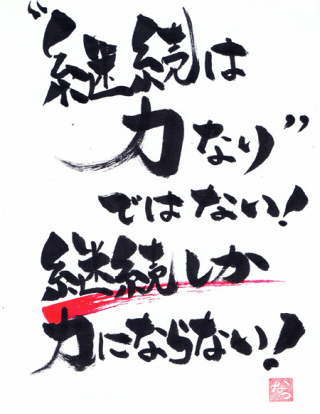 “継続は
力なり”
ではない!
継続しか
力にならない!